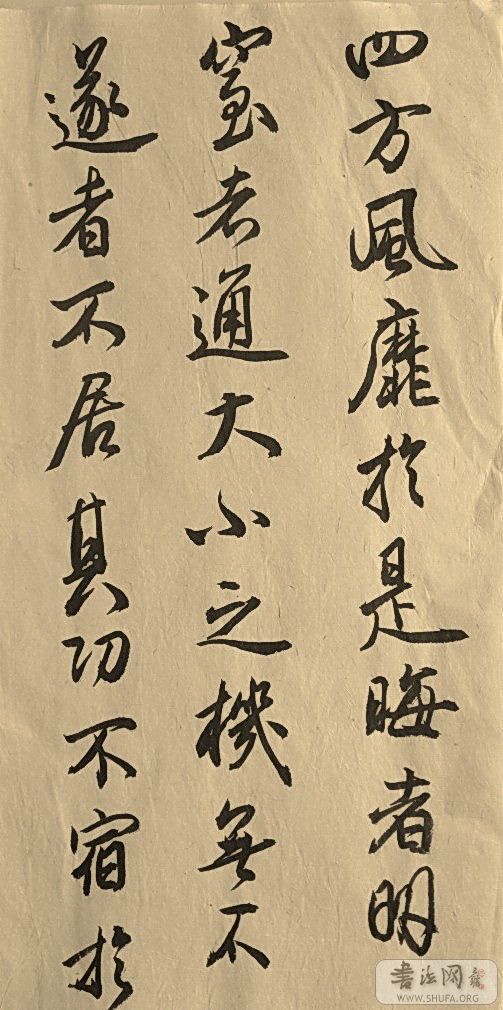 四方風靡於是晦者明
窒者通大小之機無不
遂者不居其功不宿於
書法网
WWW.SHUFA.ORG